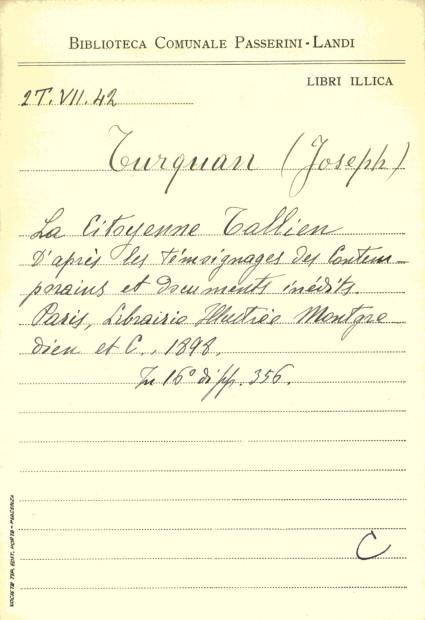 BIBLIOTECA COMUNALE PASSERINI-LANDI
LIBRI ILLICA
2T.VII.42
Turquan (Joseph)
La Citoyenne Tallien
D'après les témoignages des Contem-
porains et documents inédits.
Paris, Librairie Illustrée Montgre
dien et C., 1898.
In 16° di pp. 356.
C
SOCIETÀ TIP. EDIT. PORTA - PIACENZA